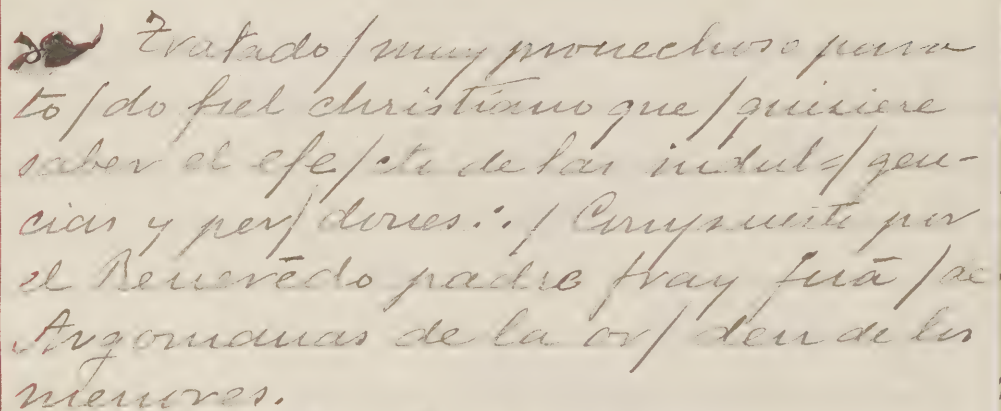 Tratado / muy prouechoso para
to / do fiel christiano que / quisiere
saber el efe / cto de las indul= / gen-
cias y per / dones :. / Compuesto por
el Reuerēdo padre fray Juā / de
Argomanas de la or / den de los
menores.